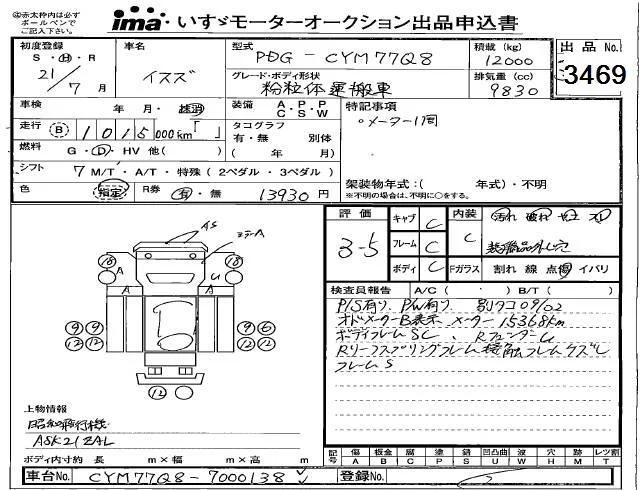 ※赤太枠内は必ずボールペンでご記入下さい。
ima いすゞモーターオークション出品申込書
初度登録 S・H・R 21/7 月
車名 イスズ
型式 PDG-CYM77Q8
積載(kg) 12000
出品No. 3469
グレード・ボディ形状 粉粒体運搬車
排気量(cc) 9830
車検 年・月・抹消
装備 A・P・P C・S・W
特記事項
。メーター1個
走行 B 1015,000km「 」
タコグラフ 有・無 別体 ( 年 月)
燃料 G・D・HV 他( )
シフト 7 M/T・A/T・特殊(2ペダル・3ペダル)
架装物年式:( 年式)・不明
※不明の場合は、不明に○をする。
色 指定
R券 有・無 13930 円
評価 3-5
キャブ C
内装 C
汚れ
フレーム C
装備品外し穴
ボディ C
Fガラス 割れ 線 点傷 イバリ
AS
A
A
U
18
18
9 9
12 12
9 6
12 12
12
検査員報告 A/C( )・B/T( )
P/S有り、P/W有り、別タコ09/02
オドメーターB表示 メーター 15368km
ボディフレームSC、RフェンダーU
Rリーフスプリングフレーム接触フレームケズレ
フレームS
上物情報
昭和飛行機
ASK212AL
ボディ内寸 約 長 m×幅 m×高 m
記号 傷 A 板金 B 腐食 C 要塗 P 錆 S 凹凸曲 U 波 W 穴 H 跡 M レツ割 T
車台No. CYM77Q8-7000138
登録No.